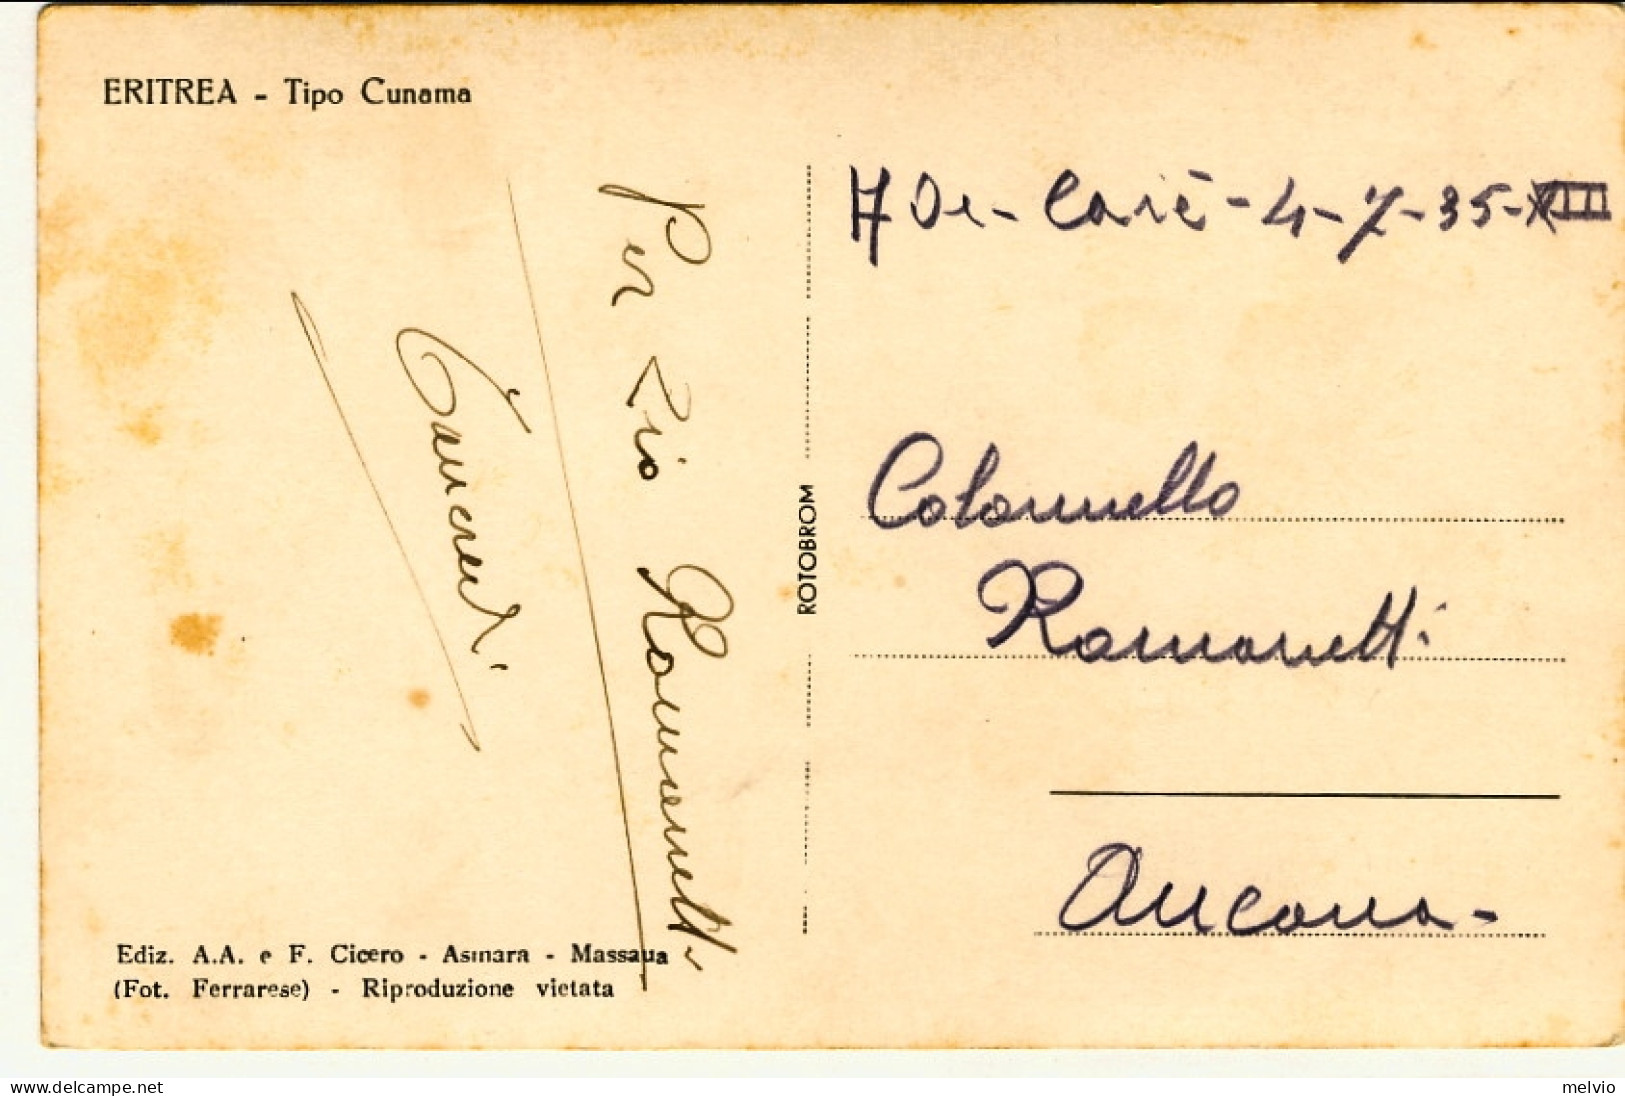 ERITREA - Tipo Cunama
Per zio Romanetti
Tancredi
Ediz. A.A. e F. Cicero - Asmara - Massaua
(Fot. Ferrarese) - Riproduzione vietata
ROTOBROM
4-7-35-XIII
Colonnello
Romanetti
Ancona-
delcampe.net
melvio